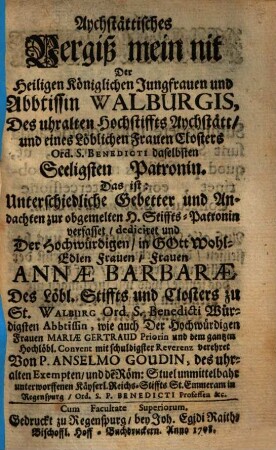 Aychstättisches
Vergiß mein nit
Der
Heiligen Königlichen Jungfrauen und
Abbtissin WALBURGIS,
Des uhralten Hochstiffts Aychstätt/
und eines Löblichen Frauen Closters
Ord. S. BENEDICTI daselbsten
Seeligsten Patronin.
Das ist:
Unterschiedliche Gebetter und An-
dachten zur obgemelten H. Stiffts-Patronin
verfasset / dediciret und
Der Hochwürdigen / in GOtt Wohl-
Edlen Frauen / Frauen
ANNÆ BARBARÆ
Des Löbl. Stiffts und Closters zu
St. WALBURG Ord. S. Benedicti Wür-
digsten Abbtissin, wie auch Der Hochwürdigen
Frauen MARIÆ GERTRAUD Priorin und dem gantzen
Hochlöbl. Convent mit schuldigster Reverenz verehret
Von P. ANSELMO GOUDIN, des uhr-
alten Exempten / und dē Röm: Stuel unmittelbahr
unterworffenen Käyserl. Reichs-Stiffts St. Emmeram in
Regenspurg / Ord. S. P. BENEDICTI Professen &c.
Cum Facultate Superiorum.
Gedruckt zu Regenspurg / bey Joh. Egidi Raith
Bischoffl. Hoff-Buchdruckern. Anno